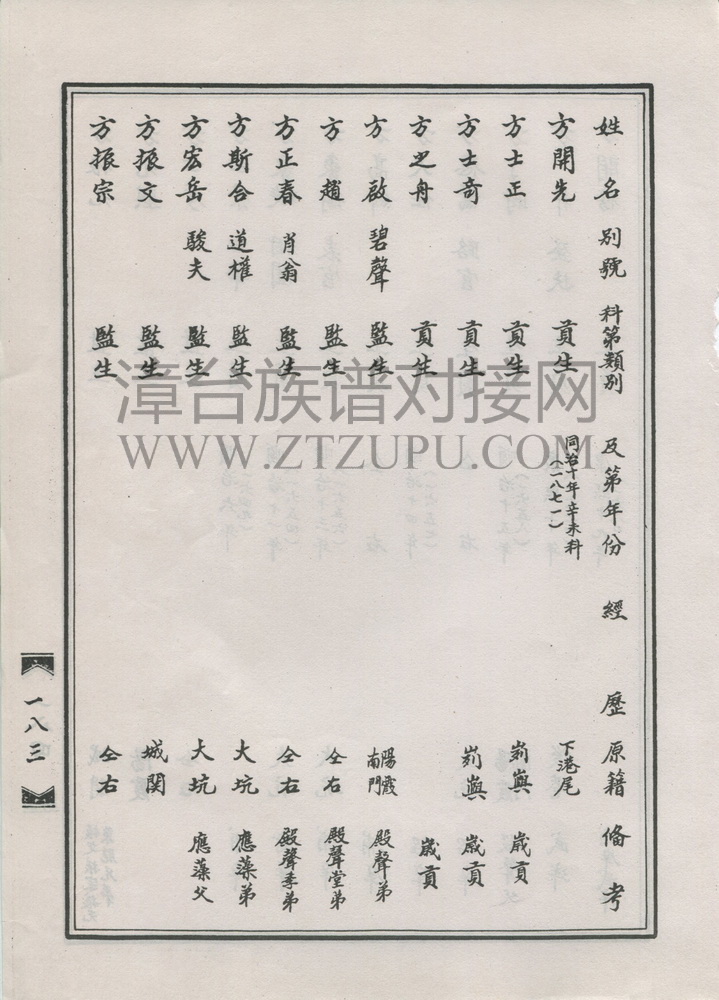 姓名 別號 科第類別 及第年份 經歷 原籍 俻考
方開先 貢生 同治十年辛未科(一八七一) 下港尾
方士正 貢生 嶼 歲貢
方士奇 貢生 嶼 歲貢
方之舟 貢生 歲貢
方啟 碧聲 監生 陽霞南門 殿聲弟
方趙 監生 仝右 殿聲堂弟
方正春 肖翁 監生 仝右 殿聲季弟
方斯合 道權 監生 大坑 應藻弟
方宏岳 駿夫 監生 大坑 應藻父
方振文 監生 城関
方振宗 監生 仝右
一八三
漳台族谱对接网
WWW.ZTZUPU.COM